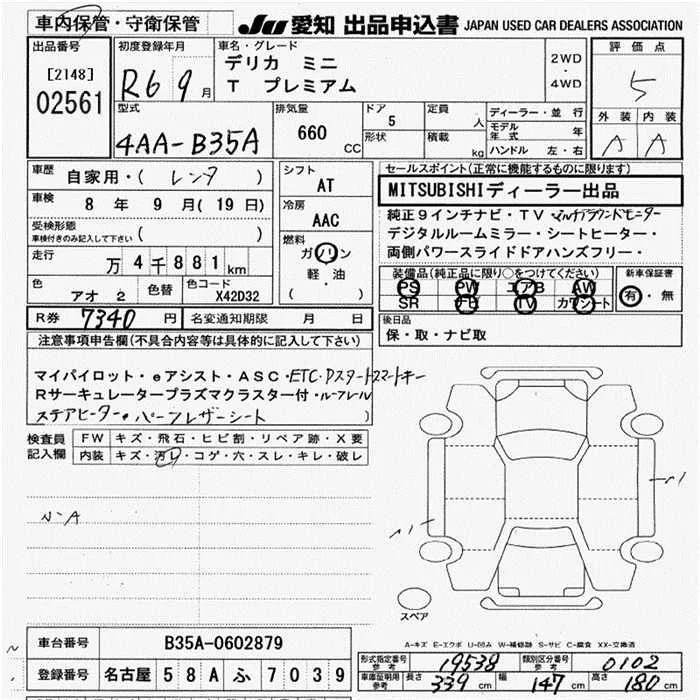 車内保管・守衛保管
JU 愛知 出品申込書 JAPAN USED CAR DEALERS ASSOCIATION
出品番号
[2148]
02561
初度登録年月
R6 9月
車名・グレード
デリカ ミニ
T プレミアム
2WD
・
4WD
評価点
5
外装 内装
A A
型式
4AA-B35A
排気量
660 CC
ドア
5
形状
定員
人
積載
kg
ディーラー・並行
モデル年式 年
ハンドル 左・右
車歴 自家用・( レンタ )
車検 8年 9月(19日)
受検形態
車検付きのみ記入して下さい ( )
走行 万4千881km
色 アオ 2
色替
色コード X42D32
シフト
AT
冷房
AAC
燃料
ガソリン
軽・油
( )
セールスポイント(正常に機能するものに限ります)
MITSUBISHIディーラー出品
純正9インチナビ・TV マルチアラウンドモニター
デジタルルームミラー・シートヒーター・
両側パワースライドドアハンズフリー・
装備品(純正品に限り○をつけてください)
PS PW エアB AW
SR ナビ TV カワシート
新車保証書
有・無
R券 7340円
名変通知期限 月 日
後日品
保・取・ナビ取
注意事項申告欄(不具合内容等は具体的に記入して下さい)
マイパイロット・eアシスト・ASC・ETC・Pスタートスマートキー
Rサーキュレータープラズマクラスター付・ルーフレール
ステアヒーター・パーフレザーシート
検査員記入欄
FW キズ・飛石・ヒビ割・リペア跡・X要
内装 キズ・汚レ・コゲ・穴・スレ・キレ・破レ
N-A
スペア
A-キズ E-エクボ U-凹み W-補修跡 S-サビ C-腐食 XX-交換済
車台番号 B35A-0602879
登録番号 名古屋 58Aふ7039
形式指定番号 参考 19538
類別区分番号 参考 0102
車庫証明用 参考 長さ 339cm 幅 147cm 高さ 180cm